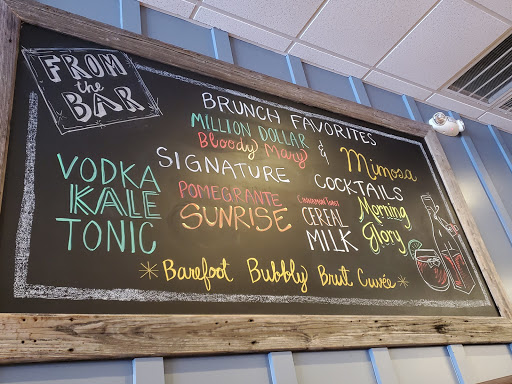 FROM
the
BAR
BRUNCH FAVORITES
MILLION DOLLAR
Bloody Mary
&
Mimosa
SIGNATURE COCKTAILS
VODKA
KALE
TONIC
POMEGRANTE
SUNRISE
CINNAMON TOAST
CEREAL
MILK
Morning
Glory
* Barefoot Bubbly Brut Cuvée *